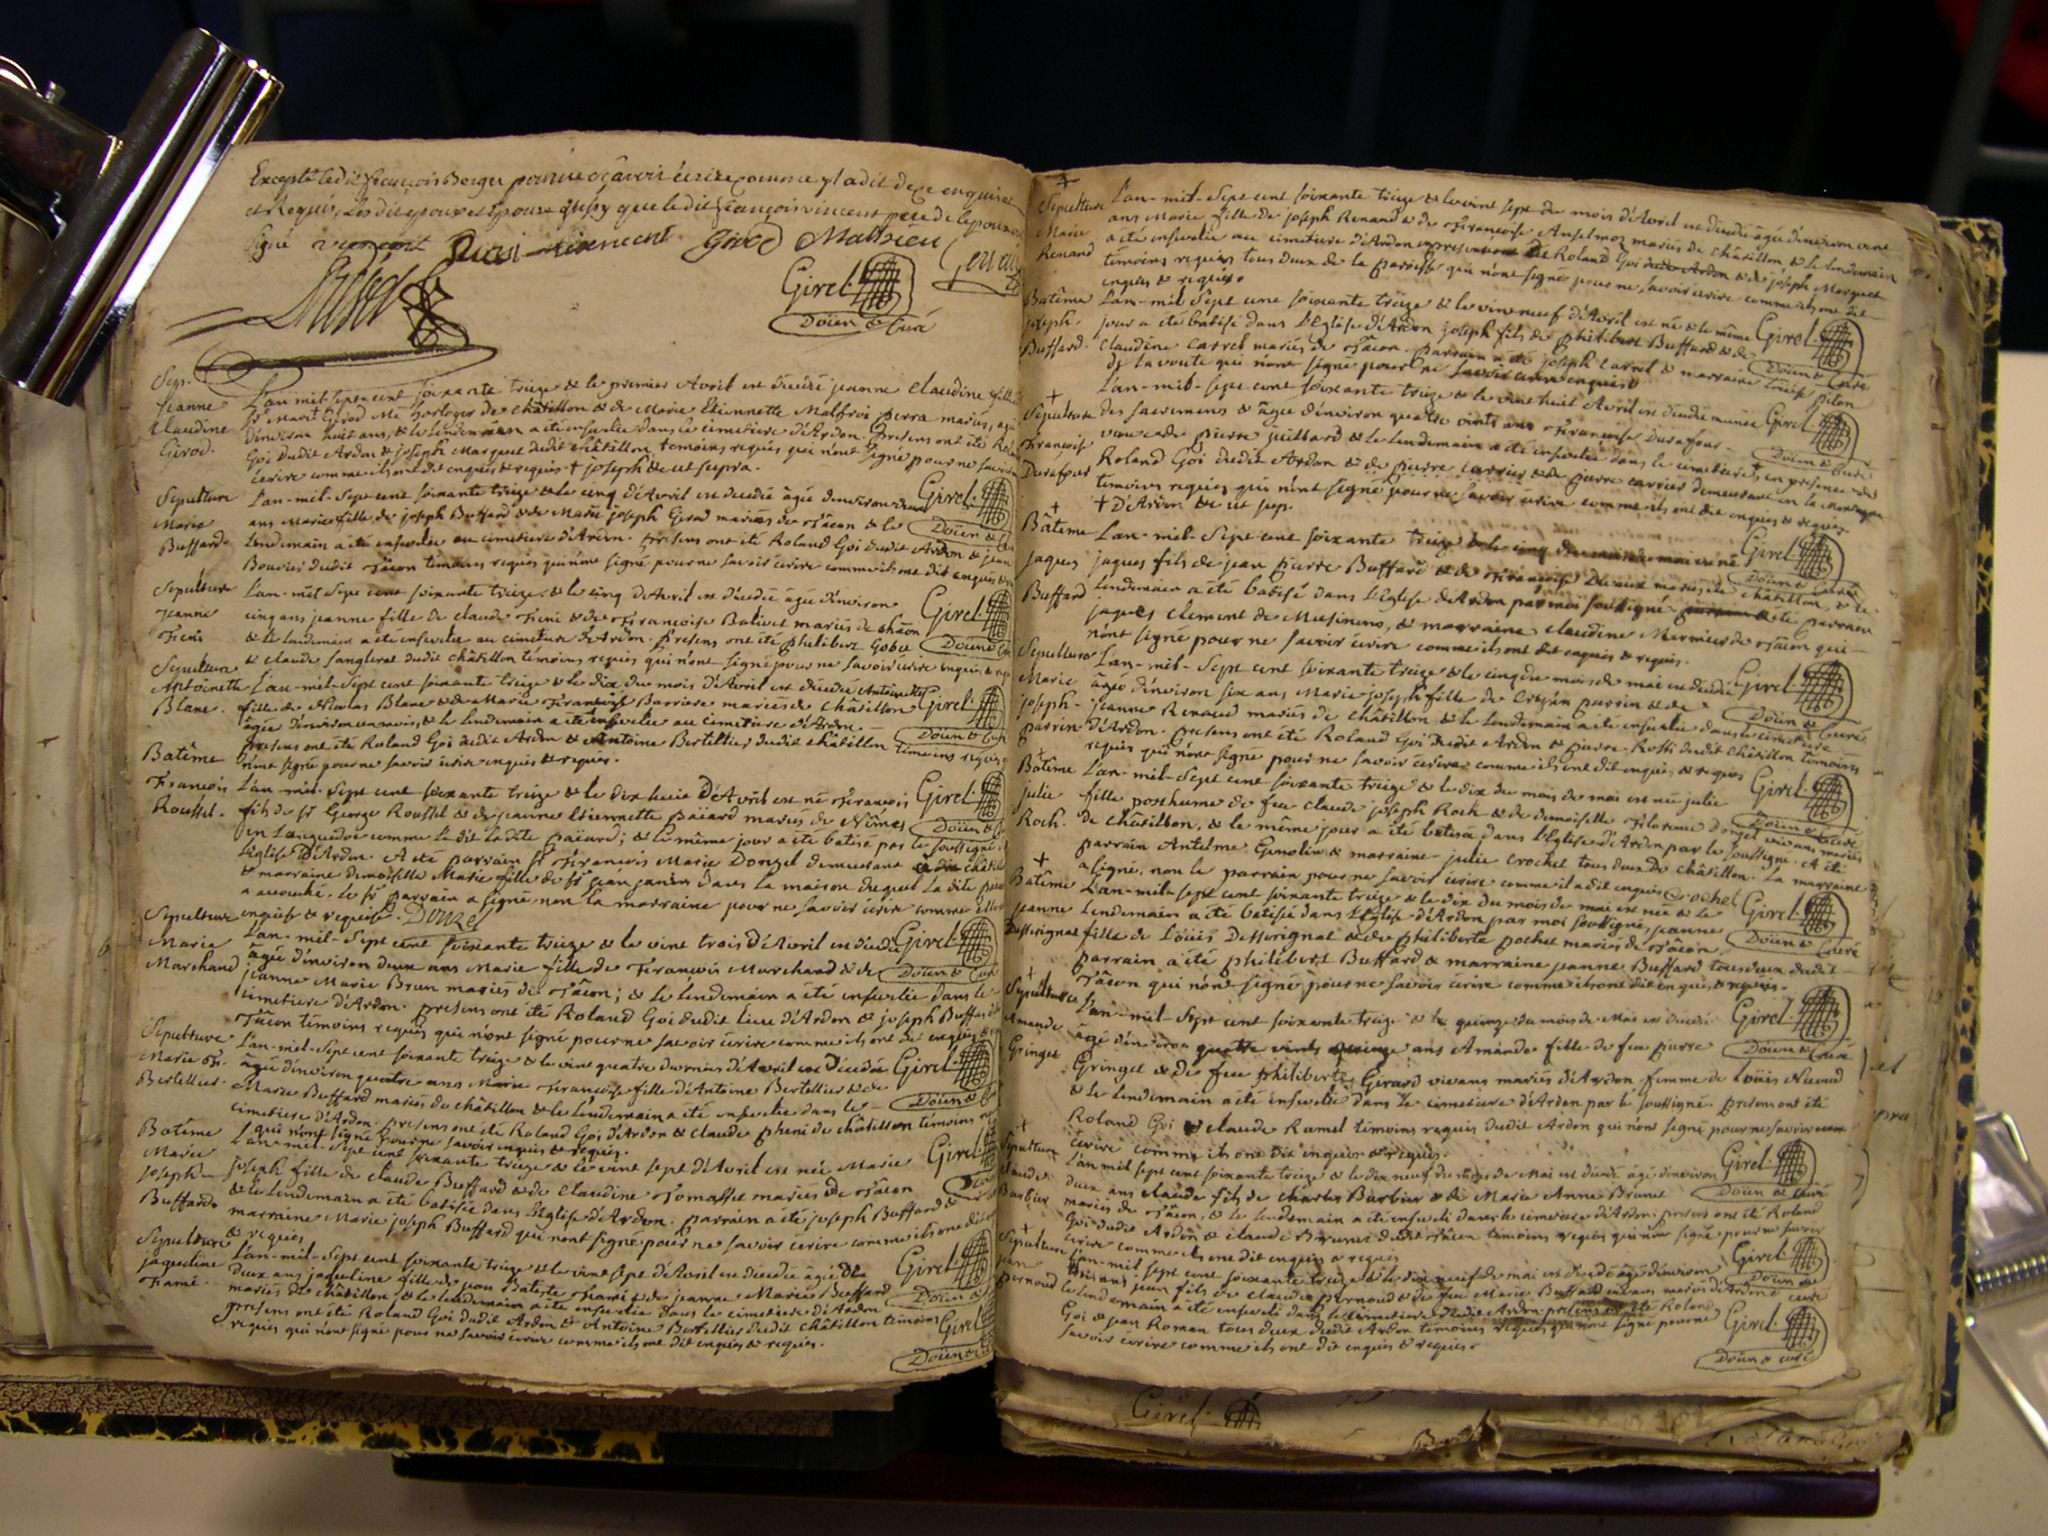 Excepté ledit françois Berger pour ne sçavoir écrire comme yl a dit de ce enquis
et Requis, Lesdits epoux et epouse ainsy que ledit françois vincent pere de lepouse
signé vincent vincent Girod Mathieu
Girel
Doïen & Curé
Sep.
Jeanne
Claudine
Girod.
L'an mil sept cent soixante treize & le premier Avril est décédée jeanne Claudine fille
Sr. Marc Girod Me. horloger de Châtillon & de Marie Etiennette Malfroi perra mariés, agée
d'environ huit ans, & le lendemain a été ensevelie dans le cimetiere d'Ardon. Presens ont été Roland
Goi dudit Ardon & joseph Marquet dudit Châtillon temoins requis qui n'ont signé pour ne savoir
écrire comme ils ont dit enquis & requis † joseph & ut supra.
Girel
Doïen &
Sepulture
Marie
Buffard.
L'an-mil-Sept cent soixante treize & le cinq d'Avril est décédée âgée d'environ deux
ans Marie fille de joseph Buffard & de Marie joseph Girod mariés de Tâcon & le
lendemain a été ensevelie au cimetiere d'Ardon. presens ont été Roland Goi dudit Ardon & jean
Bouvier dudit Tâcon témoins requis qui n'ont signé pour ne savoir écrire comme ils ont dit enquis &
Sepulture
jeanne
L'an-mil Sept cent soixante treize, & le cinq d'Avril est décédée âgée d'environ
cinq ans jeanne fille de claude & de Françoise Bolivet mariés de
& le lendemain a été ensevelie au cimetiere d'Ardon. Presens ont été philibert Gobet
& claude Sanglerat dudit châtillon témoins requis qui n'ont signé pour ne savoir écrire enquis &
Girel
Doïen &
Sepulture
Antoinette
Blanc.
L'an-mil-Sept cent soixante treize & le dix du mois d'Avril est décédée Antoinette
fille de Nicolas Blanc & de Marie Françoise Barriere mariés de Châtillon
âgée d'environ un mois, & le lendemain a été ensevelie au cimetiere d'Ardon.
presens ont été Roland Goi dudit Ardon & Antoine Bertellier dudit châtillon témoins requis
n'ont signé pour ne savoir écrire enquis & requis.
Girel
Doïen &
Batême
François
Roussel.
L'an-mil-Sept cent soixante treize & le dix huit D'Avril est né François
fils de Sr George Roussel & de jeanne Etiennette Païard mariés de Nîmes
en Languedoc comme l'a dit ladite Païard; & le même jour a été batisé par le soussigné
l'Eglise D'Ardon. A été parrain Sr François Marie Douzel demeurant
& marraine demoiselle Marie fille de Sr jean janin dans la maison duquel la dite
a accouché. Le Sr parrain a signé non la marraine pour ne savoir écrire comme
enquise & requise. Douzel
Girel
Doïen &
Sepulture
Marie
Marchand
L'an-mil-Sept cent soixante treize & le vint trois d'Avril est décédée
âgée d'environ deux ans Marie fille de François Marchand & de
jeanne Marie Brun mariés de Tâcon; & le lendemain a été ensevelie dans le
cimetiere d'Ardon. presens ont été Roland Goi dudit lieu d'Ardon & joseph Buffard
Tâcon témoins requis qui n'ont signé pour ne savoir écrire comme ils ont dit enquis &
Girel
Doïen & Curé
Sepulture
Marie Fr.
Bertellier
L'an-mil-Sept cent soixante treize & le vint quatre du mois d'Avril est Décédée
âgée d'environ quatre ans Marie Françoise fille d'Antoine Bertellier & de
Marie Buffard mariés de châtillon & le lendemain a été ensevelie dans le
cimetiere d'Ardon. presens ont été Roland Goi d'Ardon & claude de châtillon témoins
qui n'ont signé pour ne savoir enquis & requis.
Girel
Doïen &
Batême
Marie
joseph
Buffard.
L'an-mil-Sept cent soixante treize & le vint sept d'Avril est née Marie
joseph fille de claude Buffard & de claudine Tomasset mariés de Tâcon
& le lendemain a été batisée dans l'Eglise d'Ardon. parrain a été joseph Buffard &
marraine Marie joseph Buffard qui n'ont signé pour ne savoir écrire comme ils ont dit
& requis
Girel
Sepulture
jaqueline
L'an-mil-Sept cent soixante treize & le vint sept d'Avril est décédée âgée de
deux ans jaqueline fille de jean Batiste & de jeanne Marie Buffard
mariés de châtillon & le lendemain a été ensevelie dans le cimetiere d'Ardon
presens ont été Roland Goi dudit Ardon & Antoine Bertellier dudit châtillon témoins
requis qui n'ont signé pour ne savoir écrire comme ils ont dit enquis & requis.
Girel
Doïen &
Sepulture
Marie
Renaud
L'an-mil-Sept cent soixante treize & le vint sept du mois d'Avril est décédée âgée d'environ vint
ans Marie fille de joseph Renaud & de Françoise Anselmoz mariés de Châtillon & le lendemain
a été ensevelie au cimetiere d'Ardon en presence de Roland Goi dudit Ardon & de joseph Marquet
témoins requis tous deux de la paroisse qui n'ont signé pour ne savoir écrire comme ils ont dit
enquis & requis.
Girel
Doïen & Curé
Batême
joseph
Buffard.
L'an-mil Sept cent soixante treize & le vint neuf d'Avril est né & le même
jour a été batisé dans l'Eglise d'Ardon joseph fils de philibert Buffard & de
claudine Carrel mariés de Tâcon. parrain a été joseph Carrel & marraine Louise pilon
de la voute qui n'ont signé pour ne savoir écrire enquis
Girel
Sepulture
Françoise
Durafour
L'an-mil-Sept cent soixante treize & le vint huit Avril est décédée munie
des sacremens & âgée d'environ quatre vints ans Françoise Durafour
veuve de pierre juillard & le lendemain a été ensevelie dans le cimetiere †, en presence de
Roland Goi dudit Ardon & de pierre Carrier demeurant en la montagne
témoins requis qui n'ont signé pour ne savoir écrire comme ils ont dit enquis & requis.
† D'Ardon & ut sup.
Girel
Doïen & Curé
Bâteme
Jaques
Buffard
L'an-mil-Sept cent soixante treize & le cinq du mois de mai est né
jaques fils de jean pierre Buffard & de Françoise mariés de châtillon, & le
lendemain a été batisé dans l'Eglise d'Ardon par moi soussigné a été parrain
jaques Clement de Musinens, & marraine claudine Mermier de Tâcon qui
n'ont signé pour ne savoir écrire comme ils ont dit enquis & requis.
Girel
Doïen & Curé
Sepulture
Marie
joseph
perrin
L'an-mil-Sept cent soixante treize & le cinq du mois de mai est décédée
âgée d'environ six ans Marie joseph fille de perrin & de
jeanne Renaud mariés de châtillon & le lendemain a été ensevelie dans le cimetiere
d'Ardon. presens ont été Roland Goi dudit Ardon & pierre Rosti dudit châtillon témoins
requis qui n'ont signé pour ne savoir écrire comme ils ont dit enquis & requis
Girel
Doïen & Curé
Batême
Julie
Roch.
L'an-mil-Sept cent soixante treize & le dix du mois de mai est née julie
fille posthume de feu claude joseph Roch & de demoiselle Florence vivans mariés
de châtillon, & le même jour a été batisée dans l'Eglise d'Ardon par le soussigné. A été
parrain Antelme Genolin & marraine julie Crochet tous deux de châtillon. La marraine
a signé, non le parrain pour ne savoir écrire comme il a dit enquis Crochet
Girel
Doïen & Curé
Batême
jeanne
L'an-mil-Sept cent soixante treize & le dix du mois de mai est née & le
lendemain a été batisée dans l'Eglise d'Ardon par moi soussigné, jeanne
fille de Loüis & de philiberte pochet mariés de Tâcon
parrain a été philibert Buffard & marraine jeanne Buffard tous deux dudit
Tâcon qui n'ont signé pour ne savoir écrire comme ils ont dit enquis, & requis.
Girel
Doïen & Curé
Sepulture
Amande
Gringet
L'an-mil-Sept cent soixante treize & le quinze du mois de Mai est décédée
âgée d'environ quatre vints quinze ans Amande fille de feu pierre
Gringet & de feu philiberte Girard vivans mariés d'Ardon. femme de Loüis Nicoud
& le lendemain a été ensevelie dans le cimetiere d'Ardon par le soussigné. presens ont été
Roland Goi & claude Ramel témoins requis dudit Ardon qui n'ont signé pour ne savoir
écrire comme ils ont dit enquis & requis.
Girel
Doïen & Curé
Sepulture
claude
Barbier
L'an mil sept cent soixante treize & le dix neuf du mois de Mai est décédé âgé d'environ
deux ans claude fils de charles Barbier & de Marie Anne Brunet
mariés de Tâcon, & le lendemain a été enseveli dans le cimetiere d'Ardon. presens ont été Roland
Goi dudit Ardon & claude Brunet dudit Tâcon témoins requis qui n'ont signé pour ne savoir
écrire comme ils ont dit enquis & requis
Girel
Doïen & Curé
Sepulture
jean
pernoud
L'an-mil sept cent soixante treize & le dix neuf de mai est décédé âgé d'environ
trois ans jean fils de claude pernoud & de feu Marie Buffard vivans mariés d'Ardon &
le lendemain a été enseveli dans le cimetiere dudit Ardon. presens ont été Roland
Goi & jean Roman tous deux dudit Ardon témoins requis qui n'ont signé pour ne
savoir écrire comme ils ont dit enquis & requis.
Girel
Doïen & curé
Girel